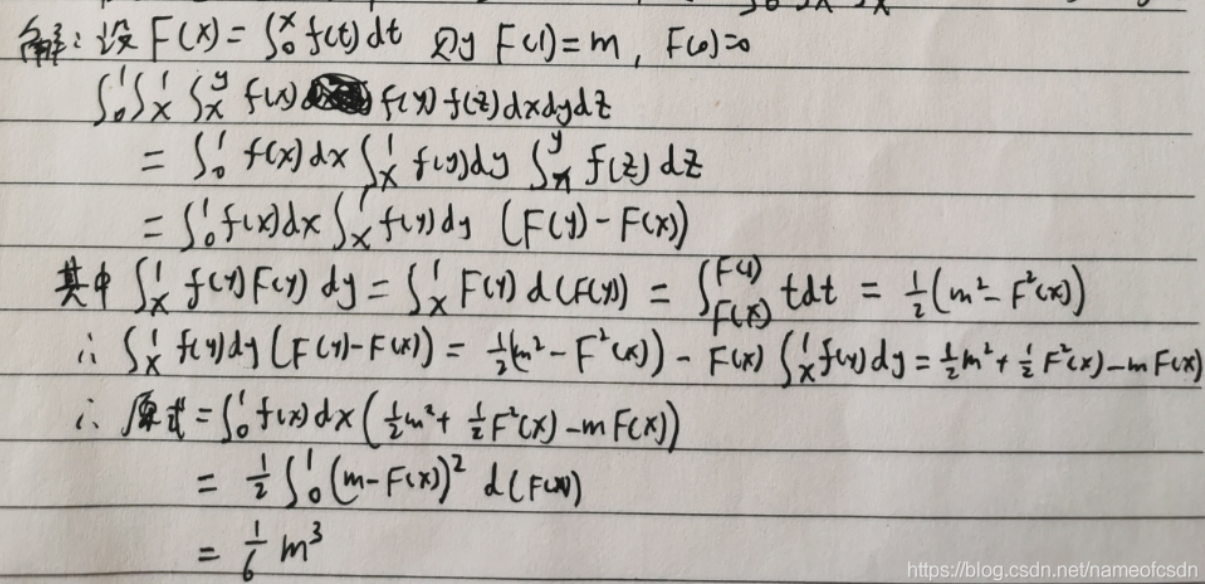 解：设 F(x) = ∫₀ˣ f(t) dt 则 F(1) = m , F(0)=0
∫₀¹ ∫ₓ¹ ∫ₓʸ f(x) f(y) f(z) dxdydz
= ∫₀¹ f(x) dx ∫ₓ¹ f(y)dy ∫ₓʸ f(z) dz
= ∫₀¹ f(x)dx ∫ₓ¹ f(y)dy (F(y) - F(x))
其中 ∫ₓ¹ f(y)F(y) dy = ∫ₓ¹ F(y) d(F(y)) = ∫_{F(x)}^{F(1)} tdt = ½(m² - F²(x))
∴ ∫ₓ¹ f(y)dy (F(y)-F(x)) = ½(m² - F²(x)) - F(x) ∫ₓ¹ f(y) dy = ½m² + ½F²(x) - mF(x)
∴ 原式 = ∫₀¹ f(x) dx (½m² + ½F²(x) - mF(x))
= ½ ∫₀¹ (m-F(x))² d(F(x))
= 1/6 m³
https://blog.csdn.net/nameofcsdn